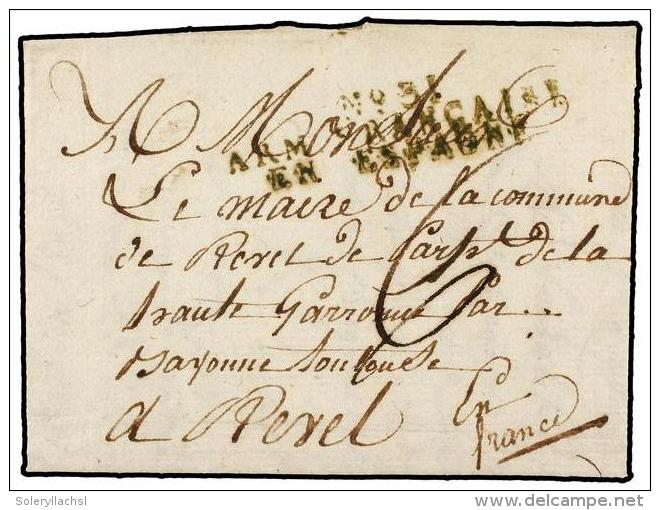 No 31
ARM FRANCAISE
EN ESPAGNE
A Monsieur
Le maire de la commune
de Revel de de la
haute Garronne Par
Bayonne toulouse
a Revel
En
france
Soleryllachsl
delcampe.net